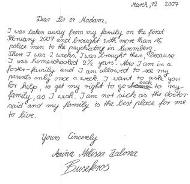 March, 12 2007
Dear Sir or Madam,
I was taken away from my family on the first
February 2007 and brought with more than 15
police men to the psychiatry in Nuremberg.
There I was 2 weeks. I was brought there, because
I was homeschooled 2½ years. Now I am in a
foster-family and I am allowed to see my
parents only once a week. I want to ask you
for help, to get my right to go to my
family, as I wish. I am not sick as the doctor
said and my family is the best place for me
to live.
Yours Sincerely
Busekros